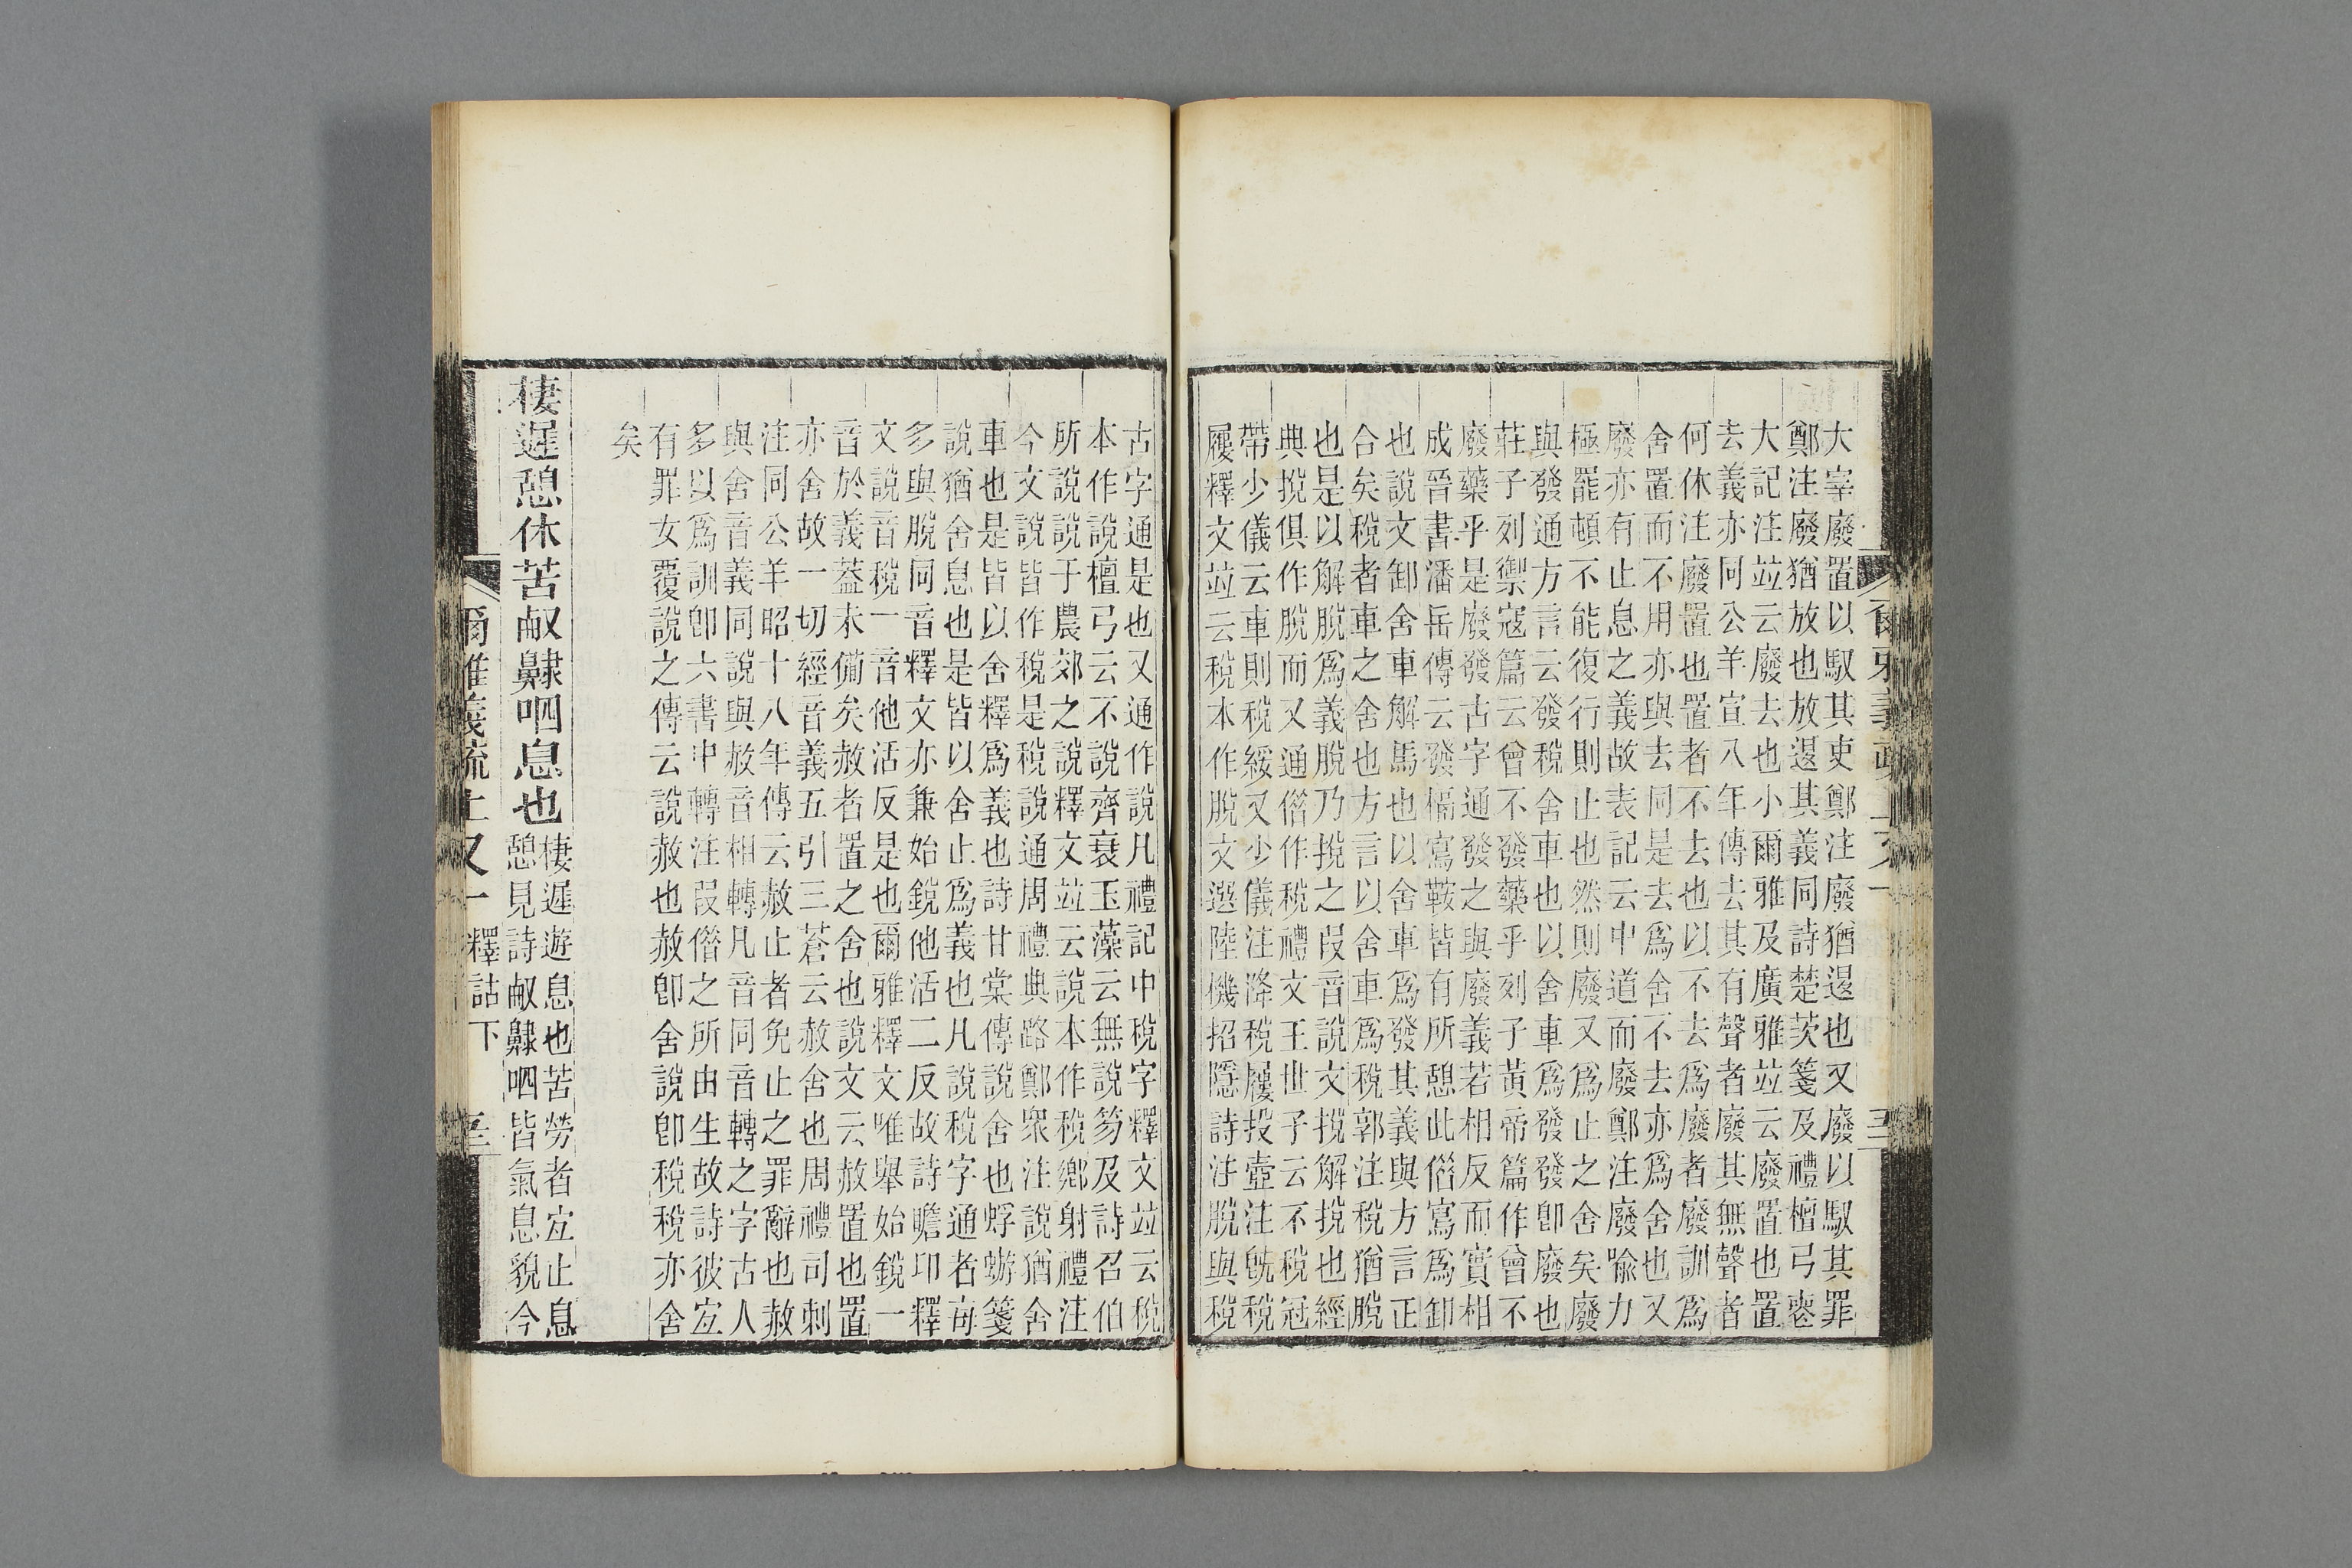 大宰廢置以馭其吏鄭注廢猶退也又廢以馭其罪
鄭注廢猶放也放退其義同詩楚茨箋及禮檀弓喪
大記注竝云廢去也小爾雅及廣雅竝云廢置也置
去義亦同公羊宣八年傳去其有聲者廢其無聲者
何休注廢置也置者不去也以不去爲廢者廢訓爲
舍置而不用亦與去同是去爲舍不去亦爲舍也又
廢亦有止息之義故表記云中道而廢鄭注廢喩力
極罷頓不能復行則止也然則廢又爲止之舍矣廢
與發通方言云發稅舍車也以舍車爲發發卽廢也
莊子列禦寇篇云曾不發藥乎列子黃帝篇作曾不
廢藥乎是廢發古字通發之與廢義若相反而實相
成晉書潘岳傳云發槅寫鞍皆有所憩此偕寫爲卸
也說文卸舍車解馬也以舍車爲發其義與方言正
合矣稅者車之舍也方言以舍車爲稅郭注稅猶脫
也是以解脫爲義脫乃挩之叚音說文挩解挩也經
典挩俱作脫而又通偕作稅禮文王世子云不稅冠
帶少儀云車則稅綏又少儀注降稅屨投壺注旣稅
履釋文竝云稅本作脫文選陸機招隱詩注脫與稅
古字通是也又通作說凡禮記中稅字釋文竝云稅
本作說檀弓云不說齊衰玉藻云無說笏及詩召伯
所說說于農郊之說釋文竝云說本作稅鄉射禮注
今文說皆作稅是稅說通周禮典路鄭眾注說猶舍
車也是皆以舍釋爲義也詩甘棠傳說舍也蜉蝣箋
說猶舍息也是皆以舍止爲義也凡說稅字通者每
多與脫同音釋文亦兼始銳他活二反故詩瞻卬釋
文說音稅一音他活反是也爾雅釋文唯舉始銳一
音於義葢未備矣赦者置之舍也說文云赦置也置
亦舍故一切經音義五引三蒼云赦舍也周禮司刺
注同公羊昭十八年傳云赦止者免止之罪辭也赦
與舍音義同說與赦音相轉凡音同音轉之字古人
多以爲訓卽六書中轉注叚偕之所由生故詩彼宐
有罪女覆說之傳云說赦也赦卽舍說卽稅稅亦舍
矣
棲遲憩休苦㕟齂呬息也棲遲遊息也苦勞者宐止息
憩見詩㕟齂呬皆氣息貌今
爾雅義疏上又一 釋詁下